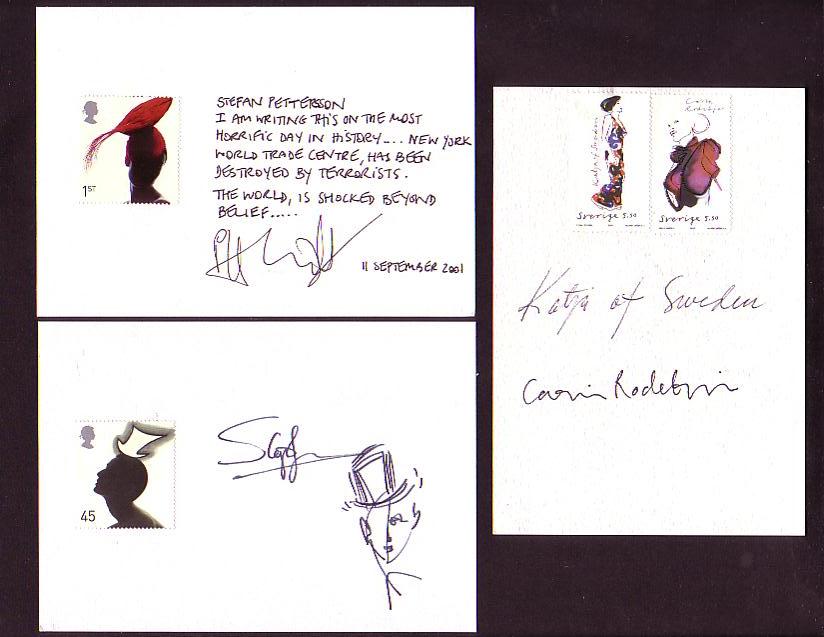 STEFAN PETTERSSON
I AM WRITING THIS ON THE MOST
HORRIFIC DAY IN HISTORY.... NEW YORK
WORLD TRADE CENTRE, HAS BEEN
DESTROYED BY TERRORISTS.
THE WORLD, IS SHOCKED BEYOND
BELIEF.....
11 SEPTEMBER 2001
1ST
45
Katja of Sweden
Sverige 5.50
Carin
Rodebjer
Sverige 5.50
Katja of Sweden
Carin Rodebjer